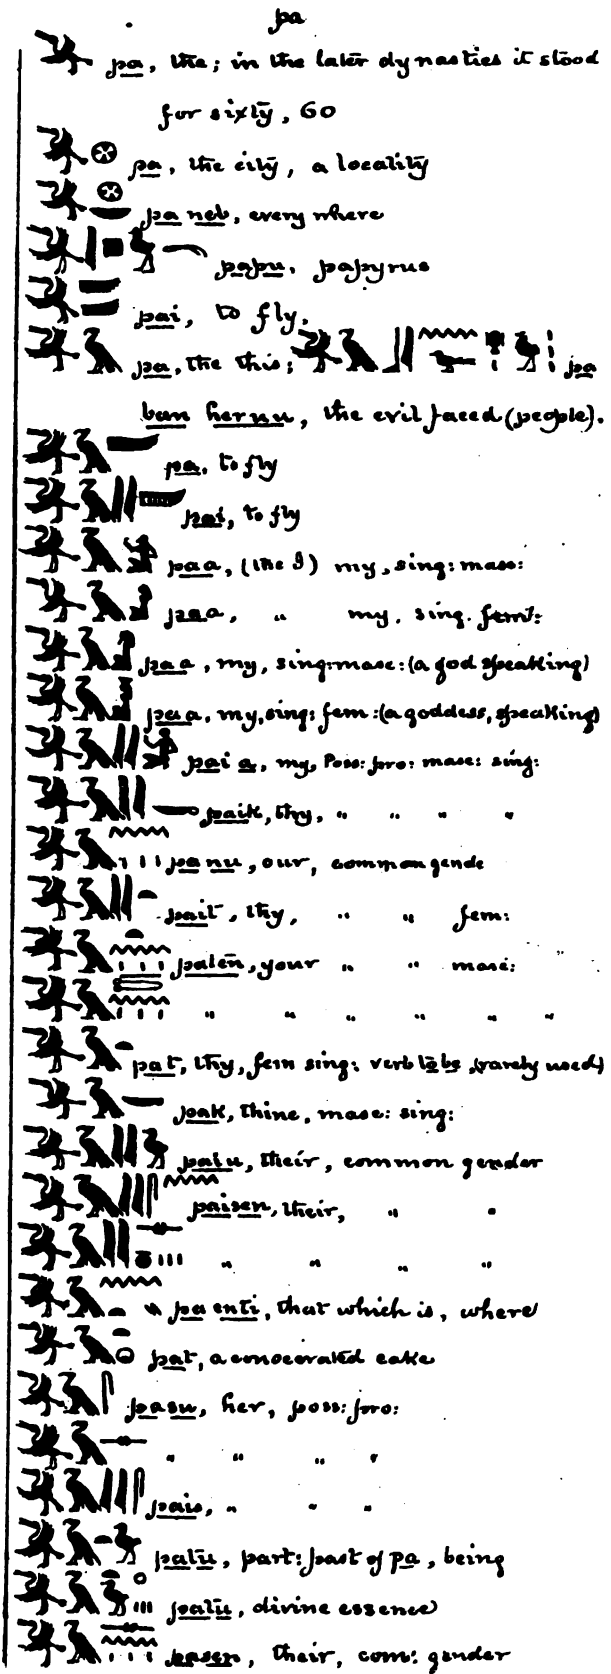 pa
pa, the; in the later dynasties it stood
for sixty, 60
pa, the city, a locality
pa neb, every where
papu, papyrus
pai, to fly,
pa, the this; pa
ban hernu, the evil faced (people).
pa, to fly
pai, to fly
paa, (the I) my, sing: masc:
paa, „ my, sing. fem:
paa, my, sing: masc: (a god speaking)
paa, my, sing: fem: (a goddess, speaking)
pai a, my, Poss: pro: masc: sing:
paik, thy, „ „ „ „
panu, our, common gende
pait, thy, „ „ fem:
paten, your „ „ masc:
„ „ „ „ „ „
pat, thy, fem sing: verb to be, (rarely used)
pak, thine, masc: sing:
paiu, their, common gender
paisen, their, „ „
„ „ „ „
pa enti, that which is, where
pat, a consecrated cake
pasu, her, poss: pro:
„ „ „ „
pais, „ „ „
patu, part: past of pa, being
patu, divine essence
pasen, their, com: gender